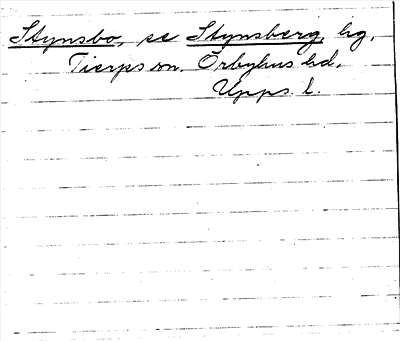 Stynsbo, se Stynsberg, hg,
Tierps sn. Örbyhus hd,
Upps. l.